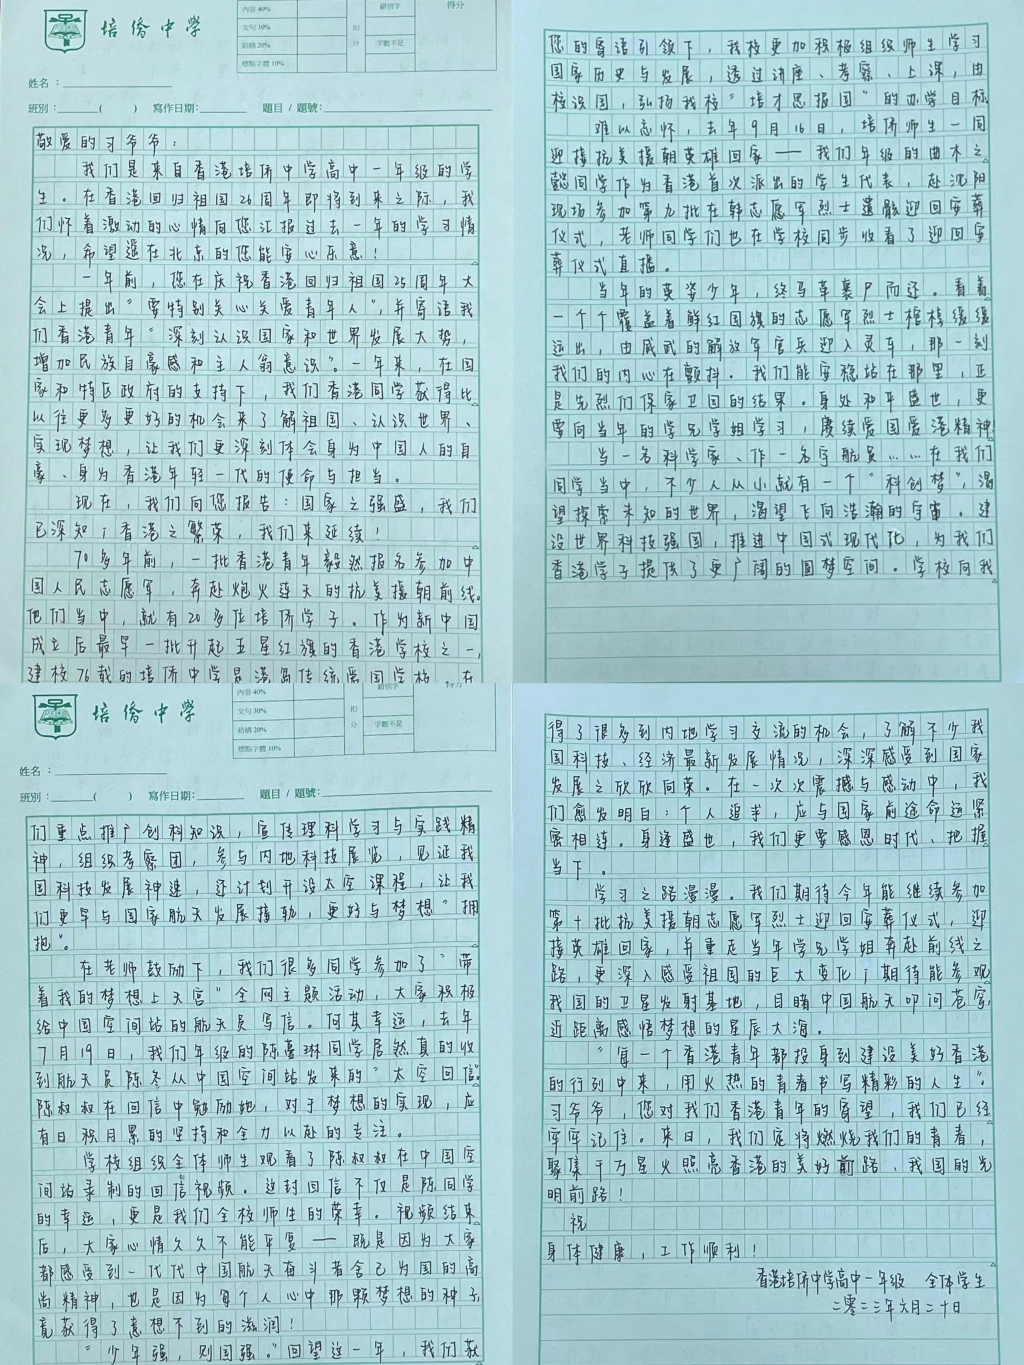 培僑中學
內容40%
文句30%
結構20%
標點字體10%
扣分
錯別字
字數不足
得分
姓名：
班別：（ ） 寫作日期： 題目 / 題號：
敬爱的习爷爷：
我们是来自香港培侨中学高中一年级的学
生。在香港回归祖国26周年即将到来之际，我
们怀着激动的心情向您汇报过去一年的学习情
况，希望远在北京的您能安心乐意！
一年前，您在庆祝香港回归祖国25周年大
会上提出“要特别关心关爱青年人”，并寄语我
们香港青年“深刻认识国家和世界发展大势，
增加民族自豪感和主人翁意识”。一年来，在国
家和特区政府的支持下，我们香港同学获得比
以往更多更好的机会来了解祖国、认识世界、
实现梦想，让我们更深刻体会身为中国人的自
豪、身为香港年轻一代的使命与担当。
现在，我们向您报告：国家之强盛，我们
已深知；香港之繁荣，我们来延续！
70多年前，一批香港青年毅然报名参加中
国人民志愿军，奔赴炮火连天的抗美援朝前线。
他们当中，就有20多位培侨学子。作为新中国
成立后最早一批升起五星红旗的香港学校之一，
建校76载的培侨中学是港岛传统爱国学校，在
您的寄语引领下，我校更加积极组织师生学习
国家历史与发展，透过讲座、考察、上课，由
校识国，弘扬我校“培才思报国”的办学目标
难以忘怀，去年9月16日，培侨师生一同
迎接抗美援朝英雄回家——我们年级的曲木之
懿同学作为香港首次派出的学生代表，赴沈阳
现场参加第九批在韩志愿军烈士遗骸迎回安葬
仪式，老师同学们也在学校同步收看了迎回安
葬仪式直播。
当年的英姿少年，终马革裹尸而还。看着
一个个覆盖着鲜红国旗的志愿军烈士棺椁缓缓
运出，由威武的解放军官兵迎入灵车，那一刻
我们的内心在颤抖。我们能安稳站在那里，正
是先烈们保家卫国的结果。身处和平盛世，更
要向当年的学兄学姐学习，赓续爱国爱港精神！
当一名科学家、作一名宇航员……在我们
同学当中，不少人从小就有一个“科创梦”，渴
望探索未知的世界，渴望飞向浩瀚的宇宙。建
设世界科技强国，推进中国式现代化，为我们
香港学子提供了更广阔的圆梦空间。学校向我
培僑中學
內容40%
文句30%
結構20%
標點字體10%
扣分
錯別字
字數不足
得分
姓名：
班別：（ ） 寫作日期： 題目 / 題號：
们重点推广创科知识，宣传理科学习与实践精
神，组织考察团，参与内地科技展览，见证我
国科技发展神速，还计划开设太空课程，让我
们更早与国家航天发展接轨，更好与梦想“拥
抱”。
在老师鼓励下，我们很多同学参加了“带
着我的梦想上天宫”全网主题活动，大家积极
给中国空间站的航天员写信。何其幸运，去年
7月19日，我们年级的陈嘉琳同学居然真的收
到航天员陈冬从中国空间站发来的“太空回信”
陈叔叔在回信中勉励她，对于梦想的实现，应
有日积月累的坚持和全力以赴的专注。
学校组织全体师生观看了陈叔叔在中国空
间站录制的回信视频。这封回信不仅是陈同学
的幸运，更是我们全校师生的荣幸。视频结束
后，大家心情久久不能平复——既是因为大家
都感受到一代代中国航天奋斗者舍己为国的高
尚精神，也是因为每个人心中那颗梦想的种子，
竟获得了意想不到的滋润！
“少年强，则国强。”回望这一年，我们获
得了很多到内地学习交流的机会，了解不少我
国科技、经济最新发展情况，深深感受到国家
发展之欣欣向荣。在一次次震撼与感动中，我
们愈发明白：个人追求，应与国家前途命运紧
密相连。身逢盛世，我们更要感恩时代、把握
当下。
学习之路漫漫。我们期待今年能继续参加
第十批抗美援朝志愿军烈士迎回安葬仪式，迎
接英雄回家，并重走当年学兄学姐奔赴前线之
路，更深入感受祖国的巨大变化；期待能参观
我国的卫星发射基地，目睹中国航天叩问苍穹，
近距离感悟梦想的星辰大海。
“每一个香港青年都投身到建设美好香港
的行列中来，用火热的青春书写精彩的人生”。
习爷爷，您对我们香港青年的寄望，我们已经
牢牢记住。来日，我们定将燃烧我们的青春，
聚集千万星火照亮香港的美好前路、我国的光
明前路！
祝
身体健康，工作顺利！
香港培侨中学高中一年级 全体学生
二零二三年六月二十日